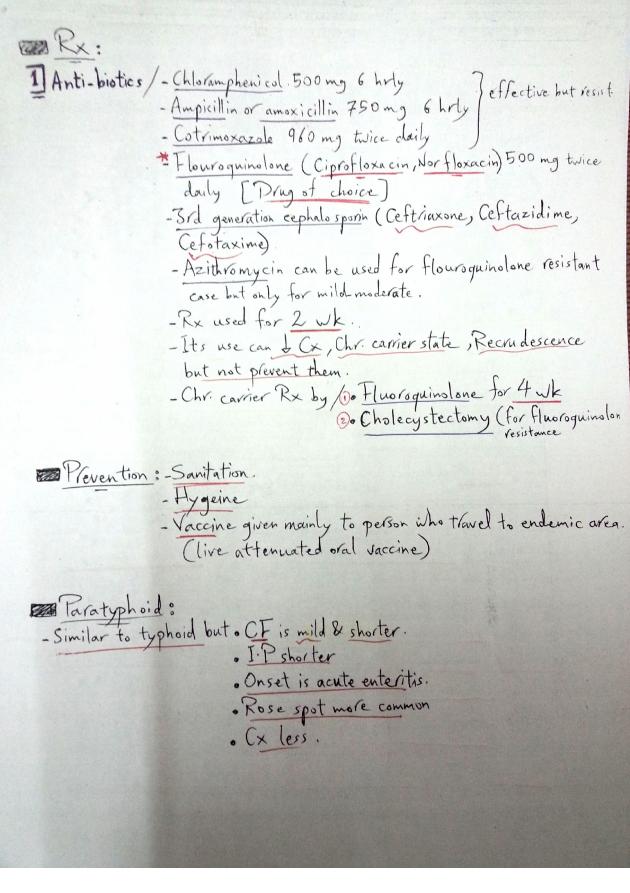 Rx:
1 Anti-biotics/ - Chloramphenicol 500 mg 6 hrly
- Ampicillin or amoxicillin 750 mg 6 hrly } effective but resist.
- Cotrimoxazole 960 mg twice daily
* - Flouroquinolone (Ciprofloxacin, Norfloxacin) 500 mg twice
daily [Drug of choice]
- 3rd generation cephalosporin (Ceftriaxone, Ceftazidime,
Cefotaxime)
- Azithromycin can be used for flouroquinolone resistant
case but only for mild-moderate.
- Rx used for 2 wk.
- Its use can ↓ Cx, Chr. carrier state, Recrudescence
but not prevent them.
- Chr. carrier Rx by / 1. Fluoroquinolone for 4 wk
2. Cholecystectomy (for fluoroquinolon
resistance
Prevention: - Sanitation.
- Hygeine
- Vaccine given mainly to person who travel to endemic area.
(live attenuated oral vaccine)
Paratyphoid:
- Similar to typhoid but • CF is mild & shorter.
• I.P shorter
• Onset is acute enteritis.
• Rose spot more common
• Cx less.